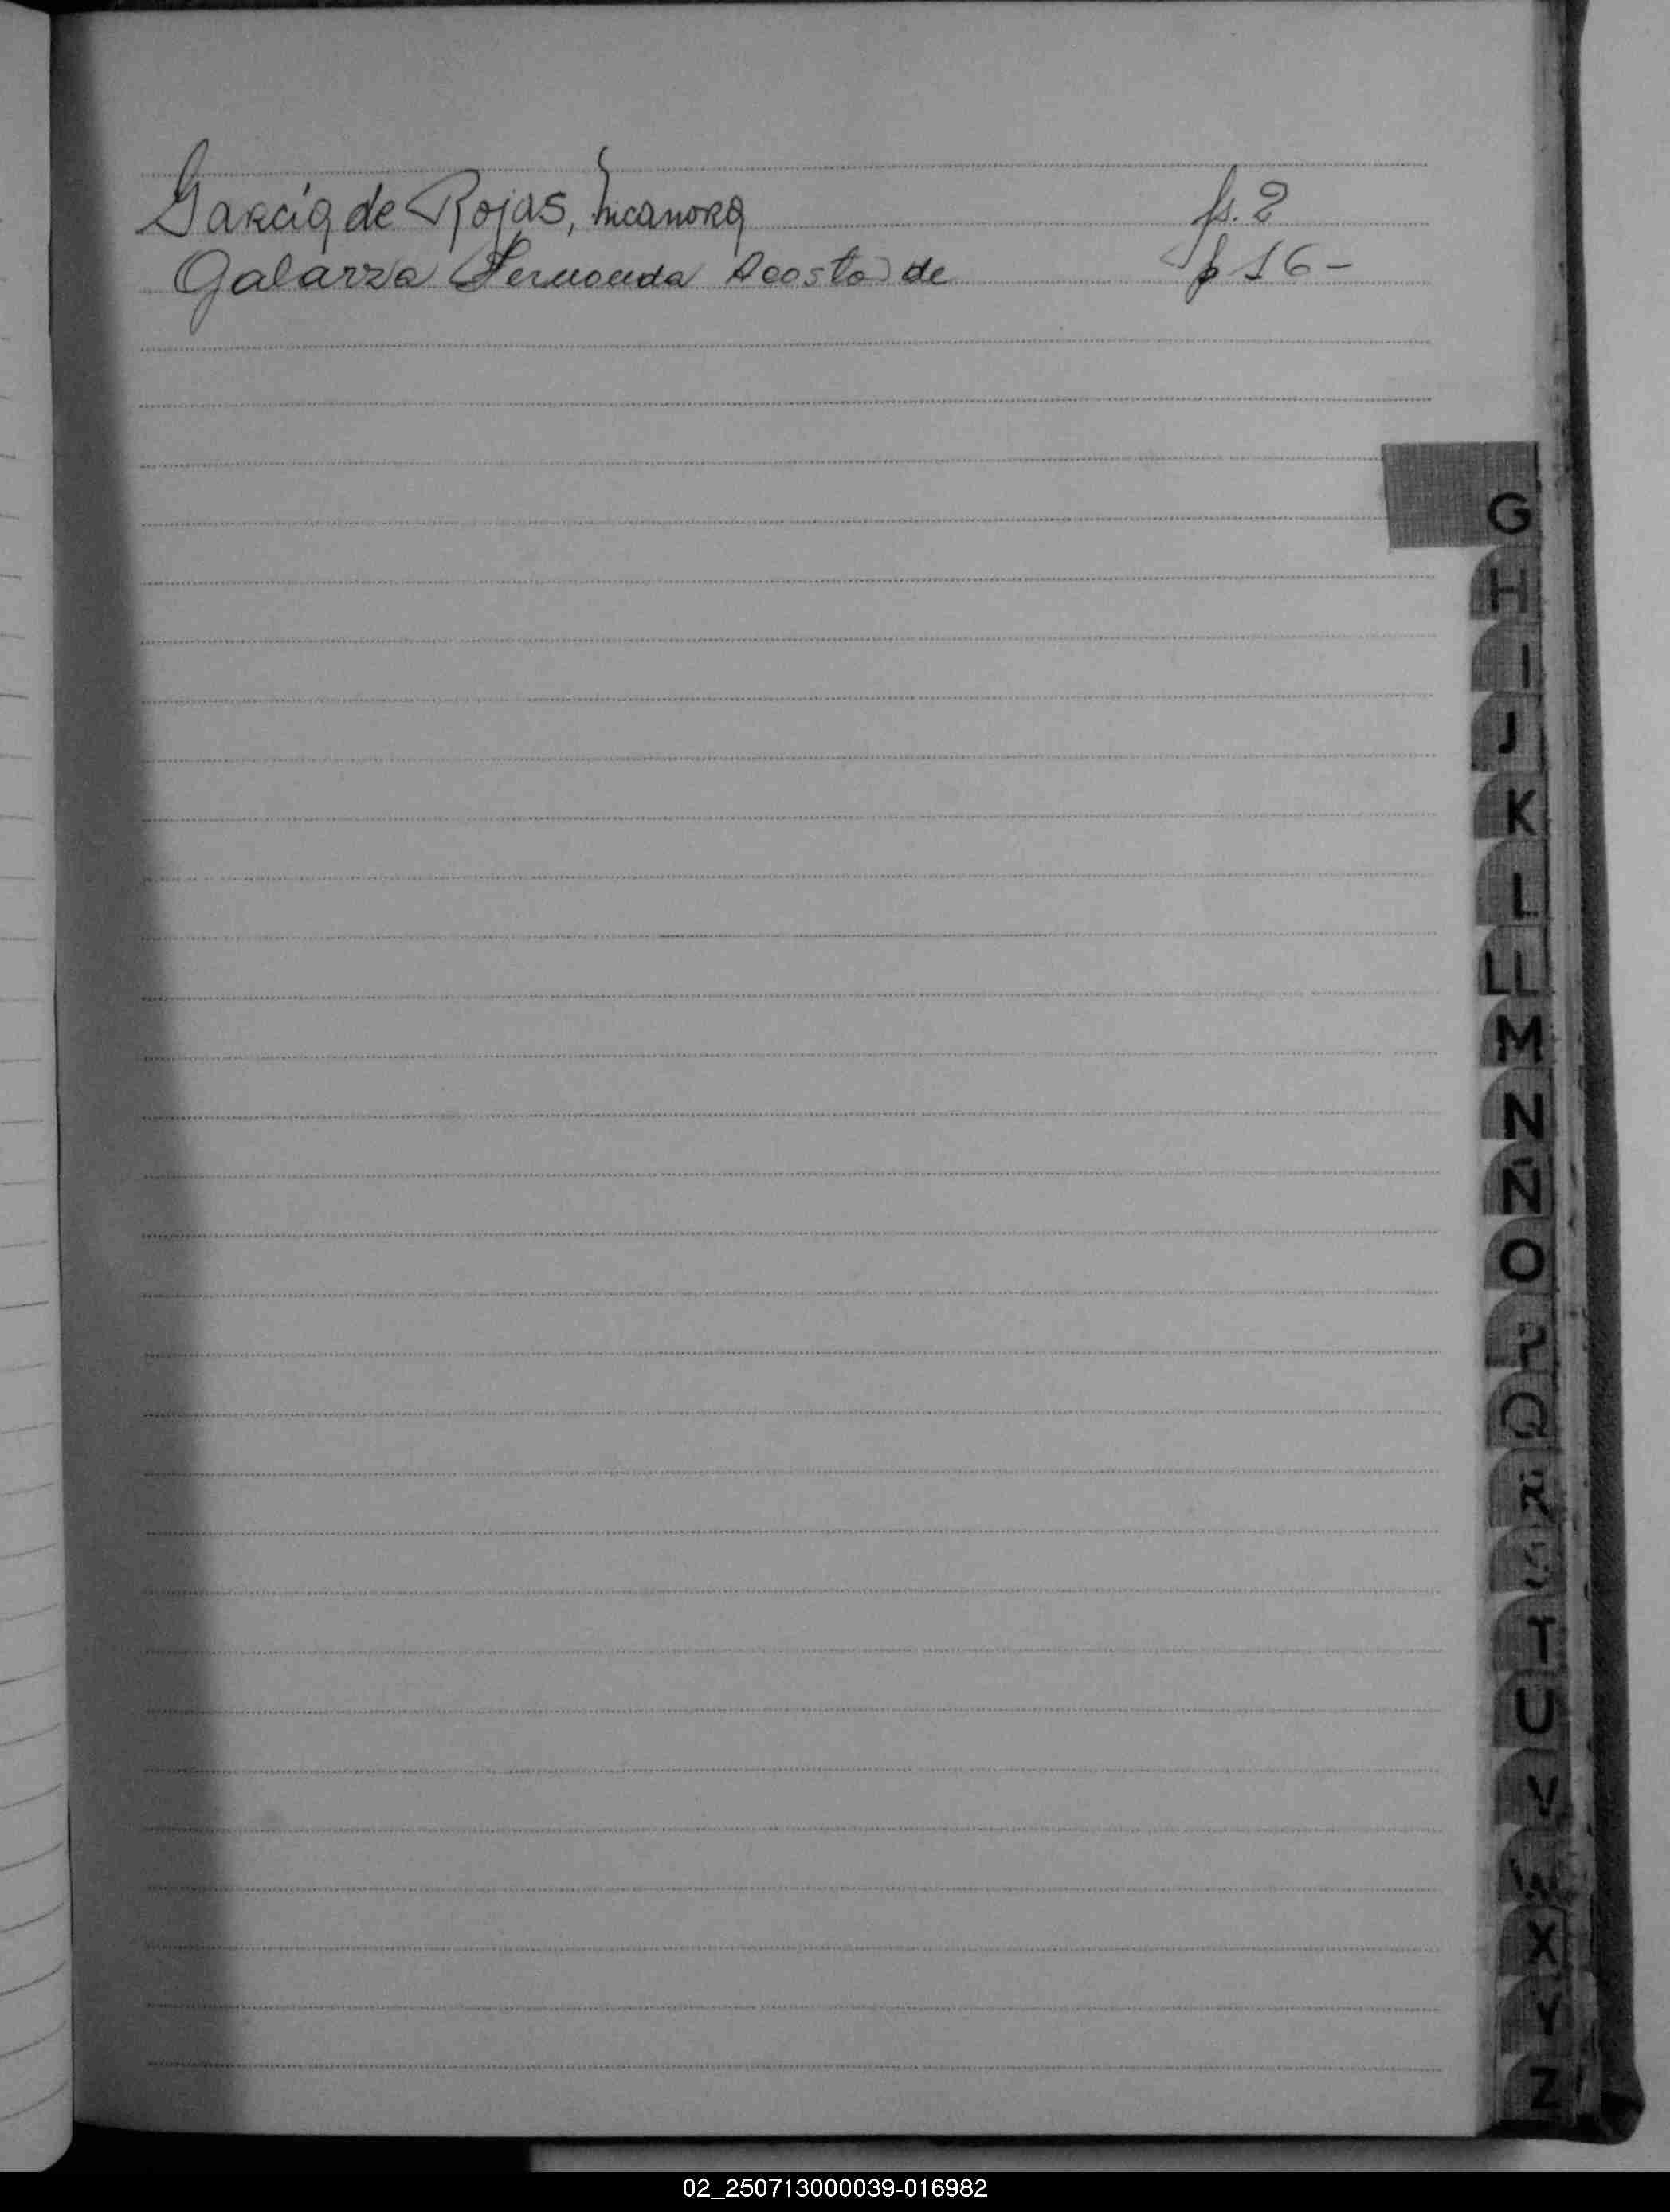 García de Rojas, Nicanora fs. 2
Galarza Fernanda Acosta de fs 16-
G
H
I
J
K
L
LL
M
N
Ñ
O
P
Q
R
S
T
U
V
W
X
Y
Z
02_250713000039-016982